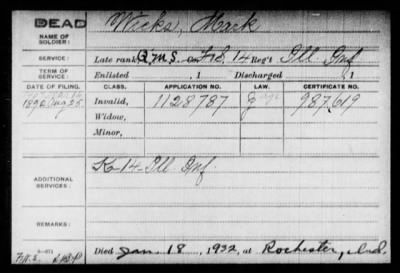 DEAD
NAME OF SOLDIER: Wicks, Mack
SERVICE: Late rank Q.M.S. F&S, 14 Reg't Ill Inf
TERM OF SERVICE: Enlisted , 1 Discharged , 1
DATE OF FILING. CLASS. APPLICATION NO. LAW. CERTIFICATE NO.
1892 Aug 25 Invalid, 1128787 987,619
Widow,
Minor,
ADDITIONAL SERVICES: K-14-Ill Inf.
REMARKS:
Died Jan 18, 1932, at Rochester, Ind.